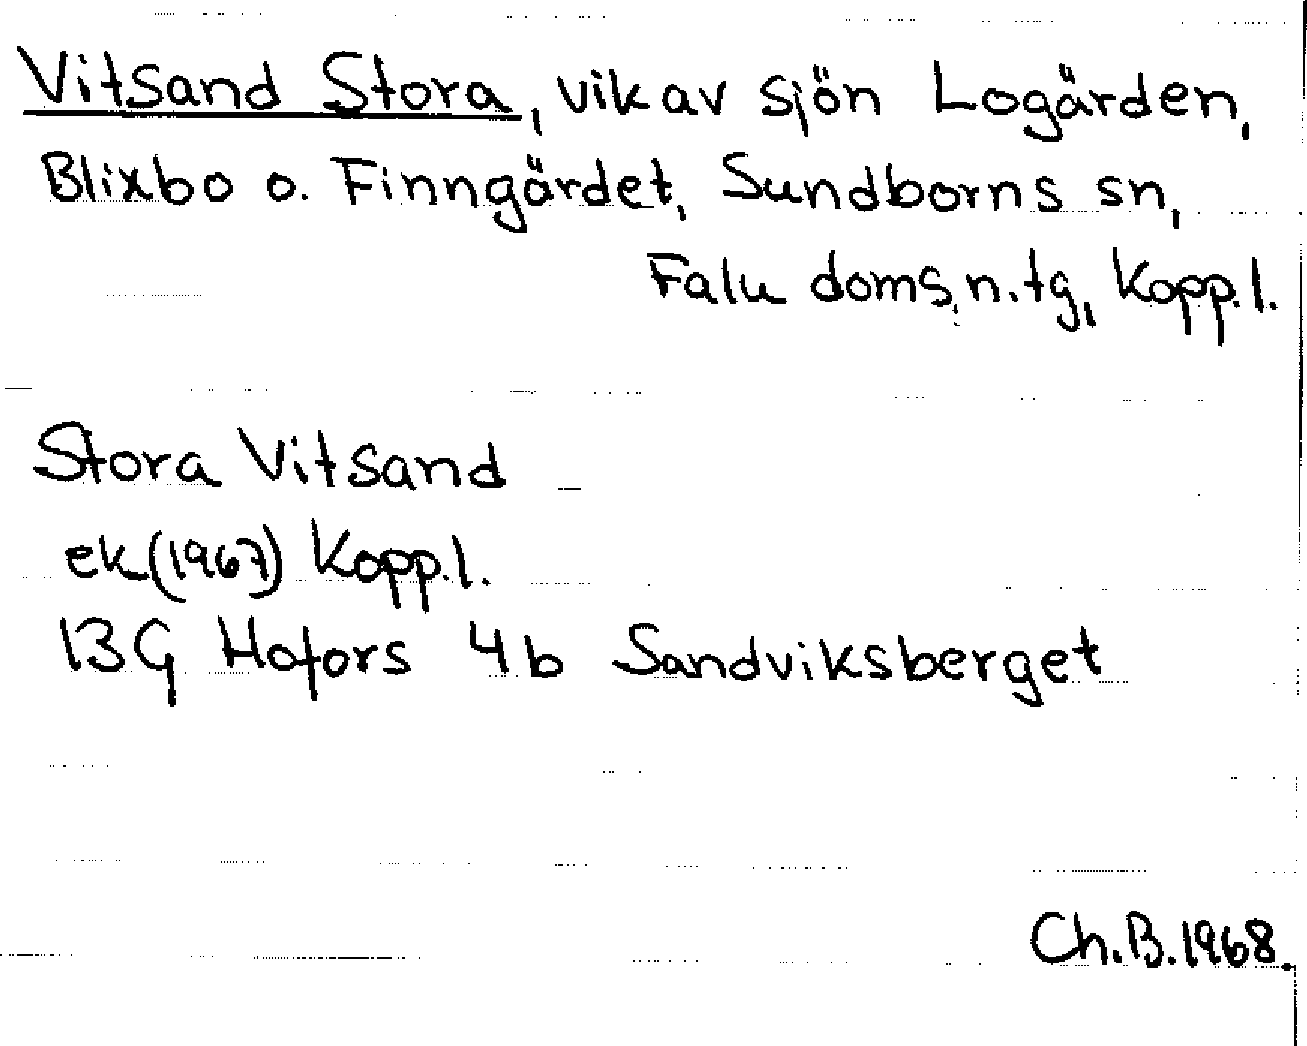 Vitsand Stora, vik av sjön Logärden,
Blixbo o. Finngärdet, Sundborns sn,
Falu doms.n.tg, Kopp.l.
Stora Vitsand
ek(1967) Kopp.l.
13G Hofors 4b Sandviksberget
Ch.B.1968.